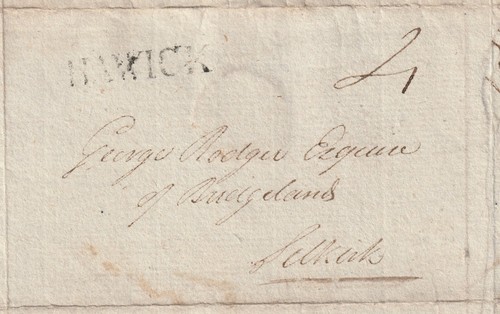 HAWICK
4
George Rodger Esquire
of Bridgelands
Selkirk